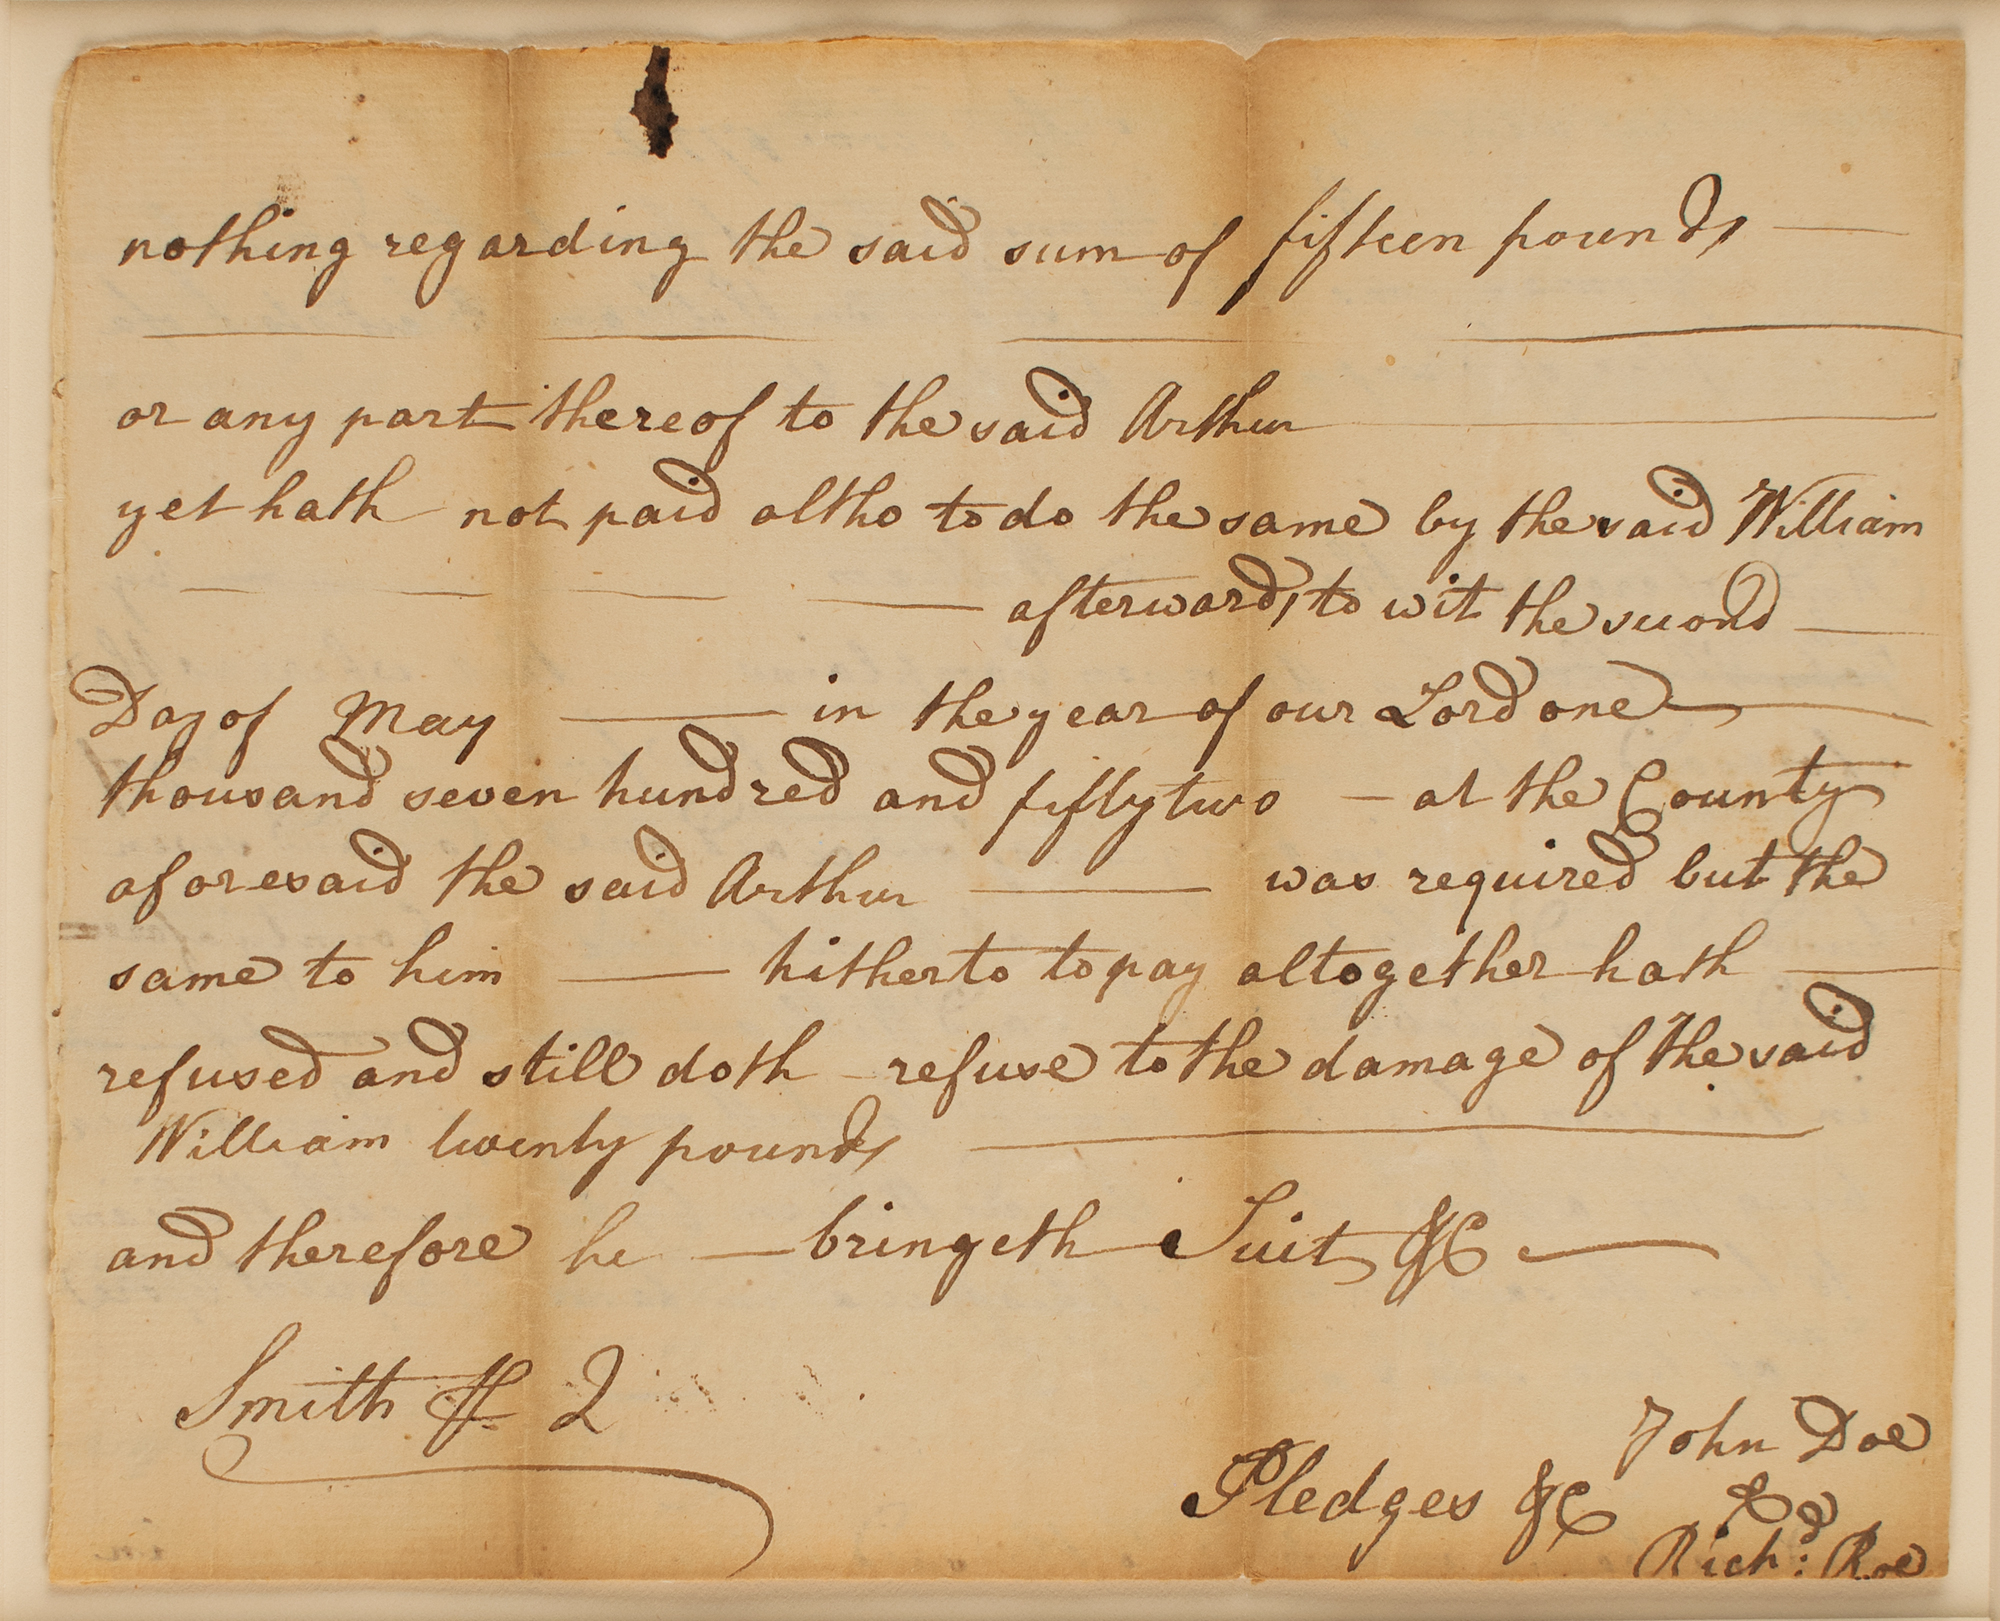 nothing regarding the said sum of fifteen pounds
or any part thereof to the said Arthur
yet hath not paid altho to do the same by the said William
afterwards to wit the second
Day of May in the year of our Lord one
thousand seven hundred and fifty two - at the County
aforesaid the said Arthur was required but the
same to him hitherto to pay altogether hath
refused and still doth refuse to the damage of the said
William twenty pounds
and therefore he bringeth Suit &c
Smith
John Doe
Pledges &c &
Richd: Roe